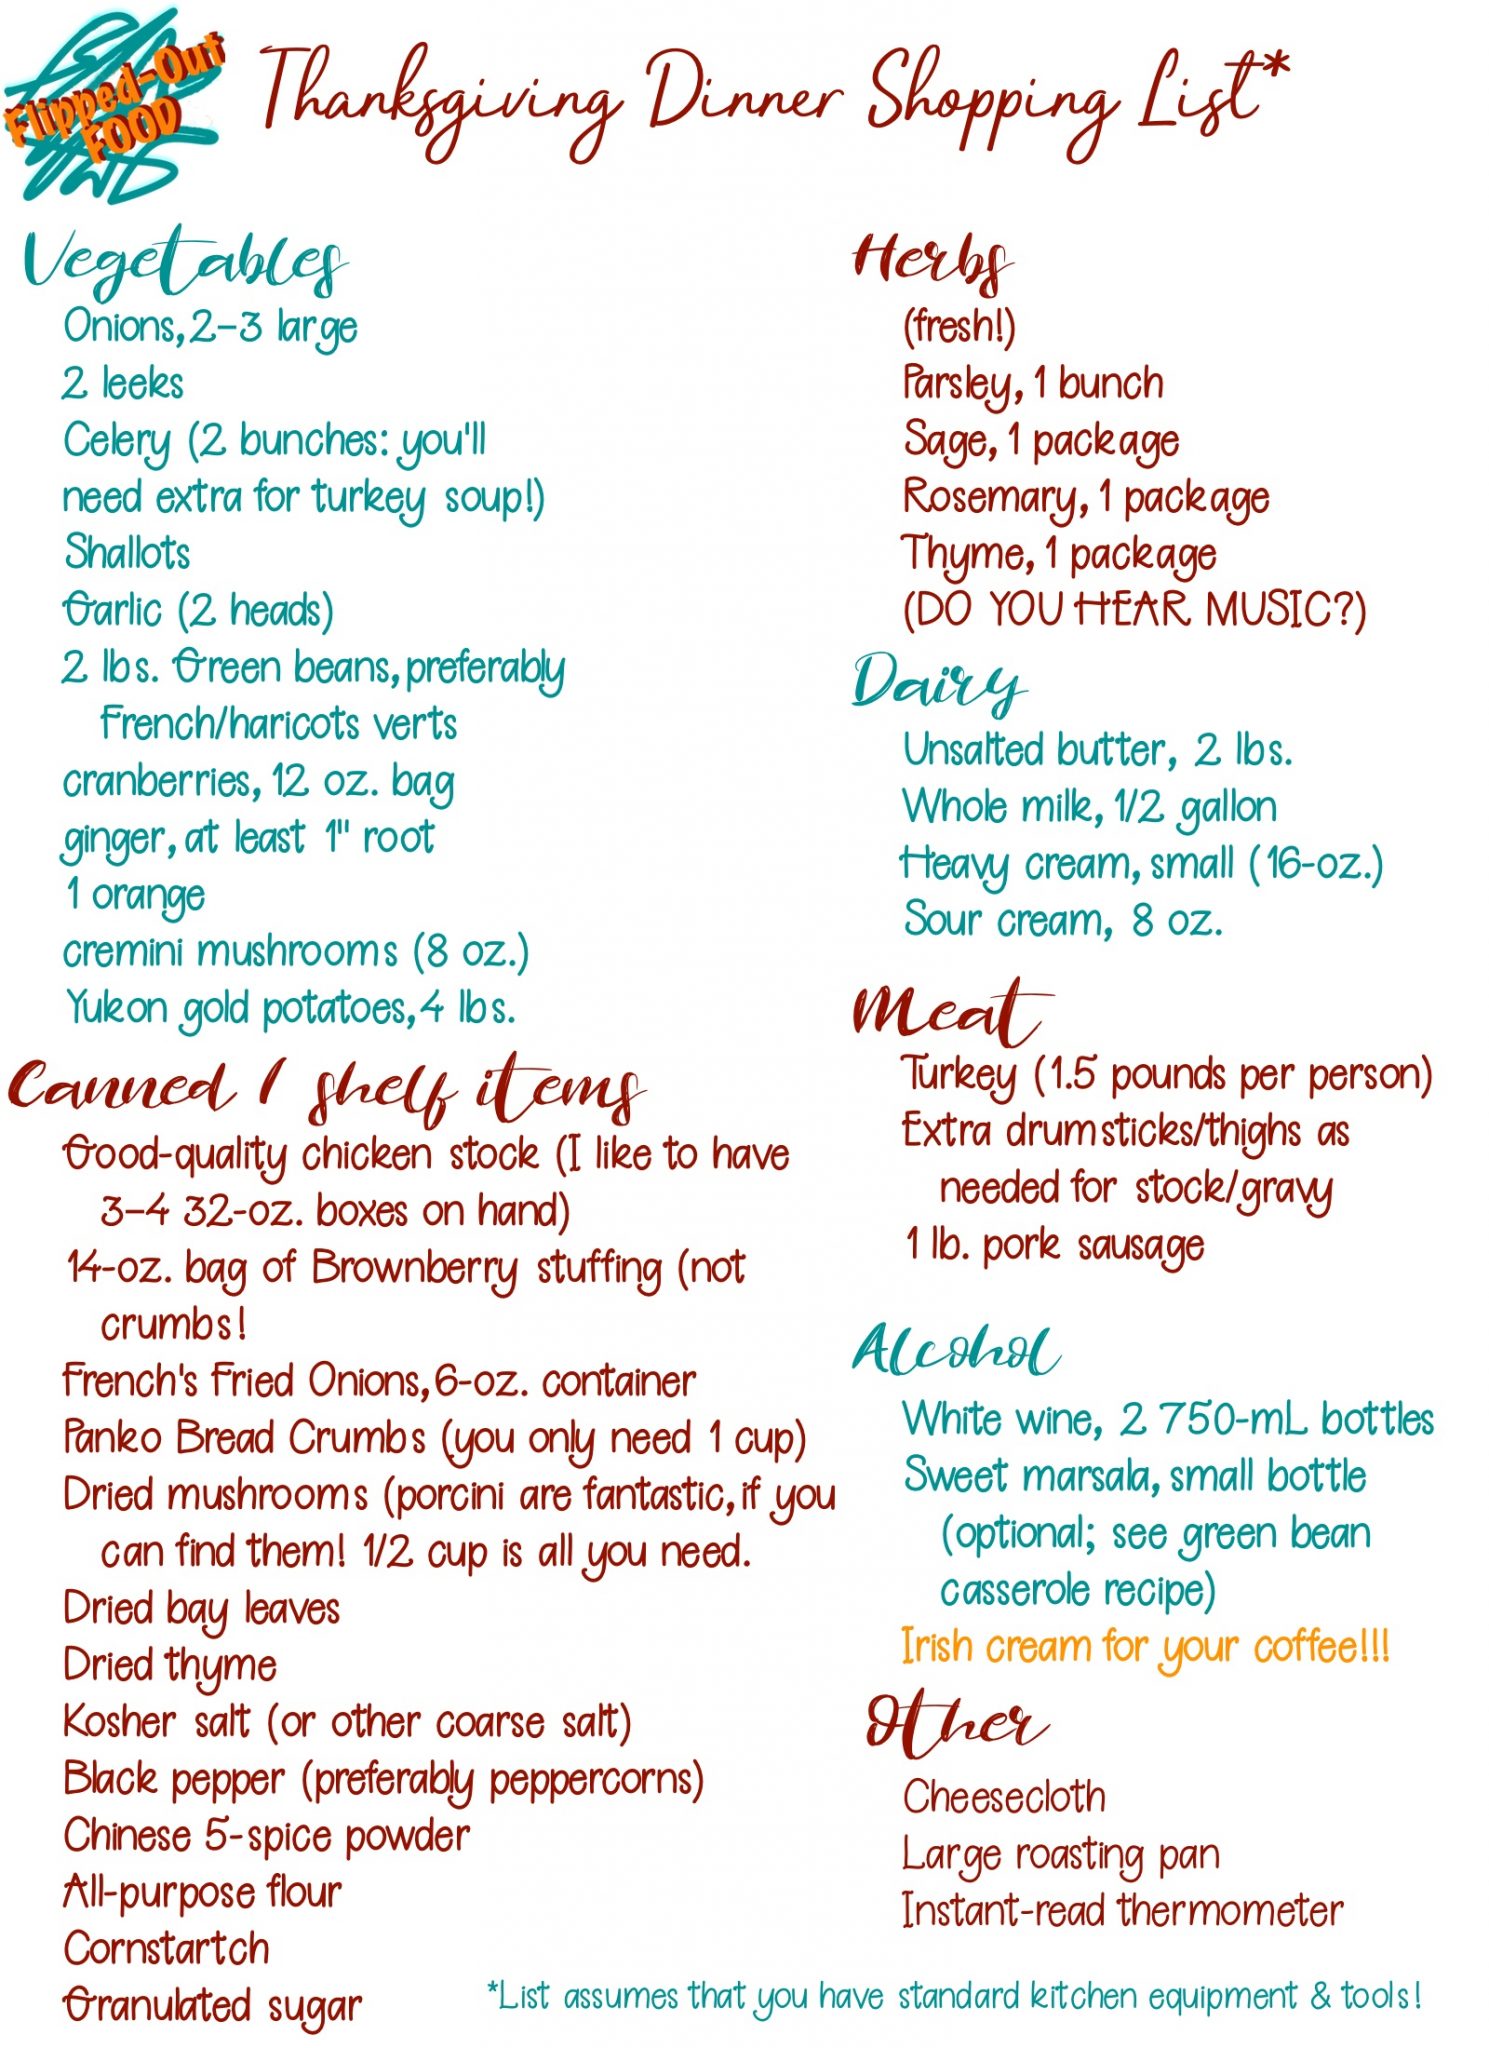 Flipped-Out
FOOD
Thanksgiving Dinner Shopping List*
Vegetables
Onions, 2-3 large
2 leeks
Celery (2 bunches: you'll
need extra for turkey soup!)
Shallots
Garlic (2 heads)
2 lbs. Green beans, preferably
French/haricots verts
cranberries, 12 oz. bag
ginger, at least 1" root
1 orange
cremini mushrooms (8 oz.)
Yukon gold potatoes, 4 lbs.
Canned / shelf items
Good-quality chicken stock (I like to have
3-4 32-oz. boxes on hand)
14-oz. bag of Brownberry stuffing (not
crumbs!
French's Fried Onions, 6-oz. container
Panko Bread Crumbs (you only need 1 cup)
Dried mushrooms (porcini are fantastic, if you
can find them! 1/2 cup is all you need.
Dried bay leaves
Dried thyme
Kosher salt (or other coarse salt)
Black pepper (preferably peppercorns)
Chinese 5-spice powder
All-purpose flour
Cornstartch
Granulated sugar
Herbs
(fresh!)
Parsley, 1 bunch
Sage, 1 package
Rosemary, 1 package
Thyme, 1 package
(DO YOU HEAR MUSIC?)
Dairy
Unsalted butter, 2 lbs.
Whole milk, 1/2 gallon
Heavy cream, small (16-oz.)
Sour cream, 8 oz.
Meat
Turkey (1.5 pounds per person)
Extra drumsticks/thighs as
needed for stock/gravy
1 lb. pork sausage
Alcohol
White wine, 2 750-mL bottles
Sweet marsala, small bottle
(optional; see green bean
casserole recipe)
Irish cream for your coffee!!!
Other
Cheesecloth
Large roasting pan
Instant-read thermometer
*List assumes that you have standard kitchen equipment & tools!